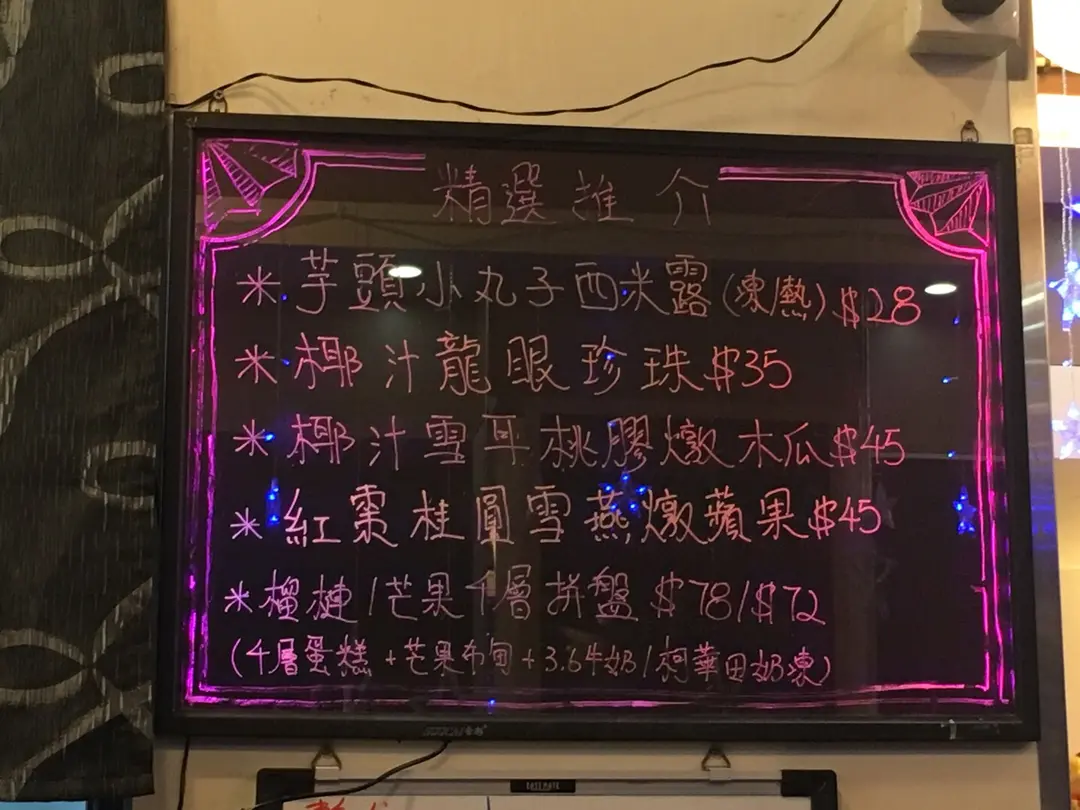 精選推介
* 芋頭小丸子西米露(凍/熱) $28
* 椰汁龍眼珍珠 $35
* 椰汁雪耳桃膠燉木瓜 $45
* 紅棗桂圓雪燕燉蘋果 $45
* 榴槤/芒果4層拼盤 $78/$72
(4層蛋糕+芒果布甸+3.6牛奶/阿華田奶凍)